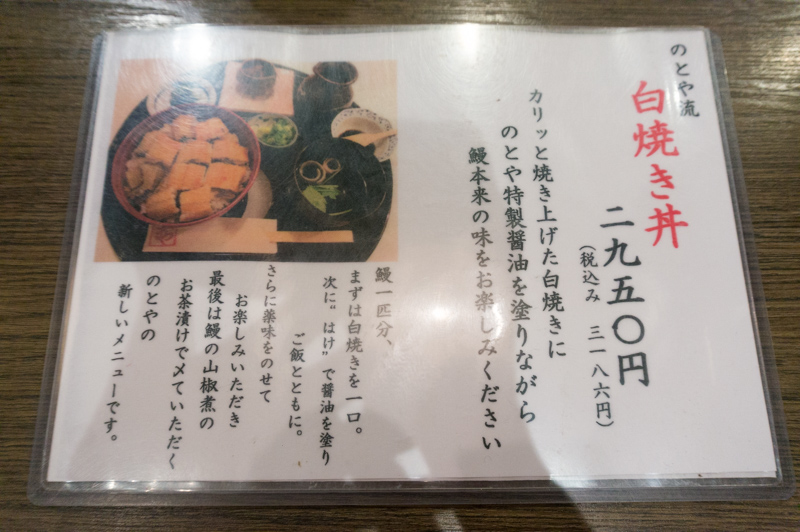 のとや流
白焼き丼
二九五〇円
（税込み　三一八六円）
カリッと焼き上げた白焼きに
のとや特製醤油を塗りながら
鰻本来の味をお楽しみください
鰻一匹分、
まずは白焼きを一口。
次に“はけ”で醤油を塗り
ご飯とともに。
さらに薬味をのせて
お楽しみいただき
最後は鰻の山椒煮の
お茶漬けで〆ていただく
のとやの
新しいメニューです。